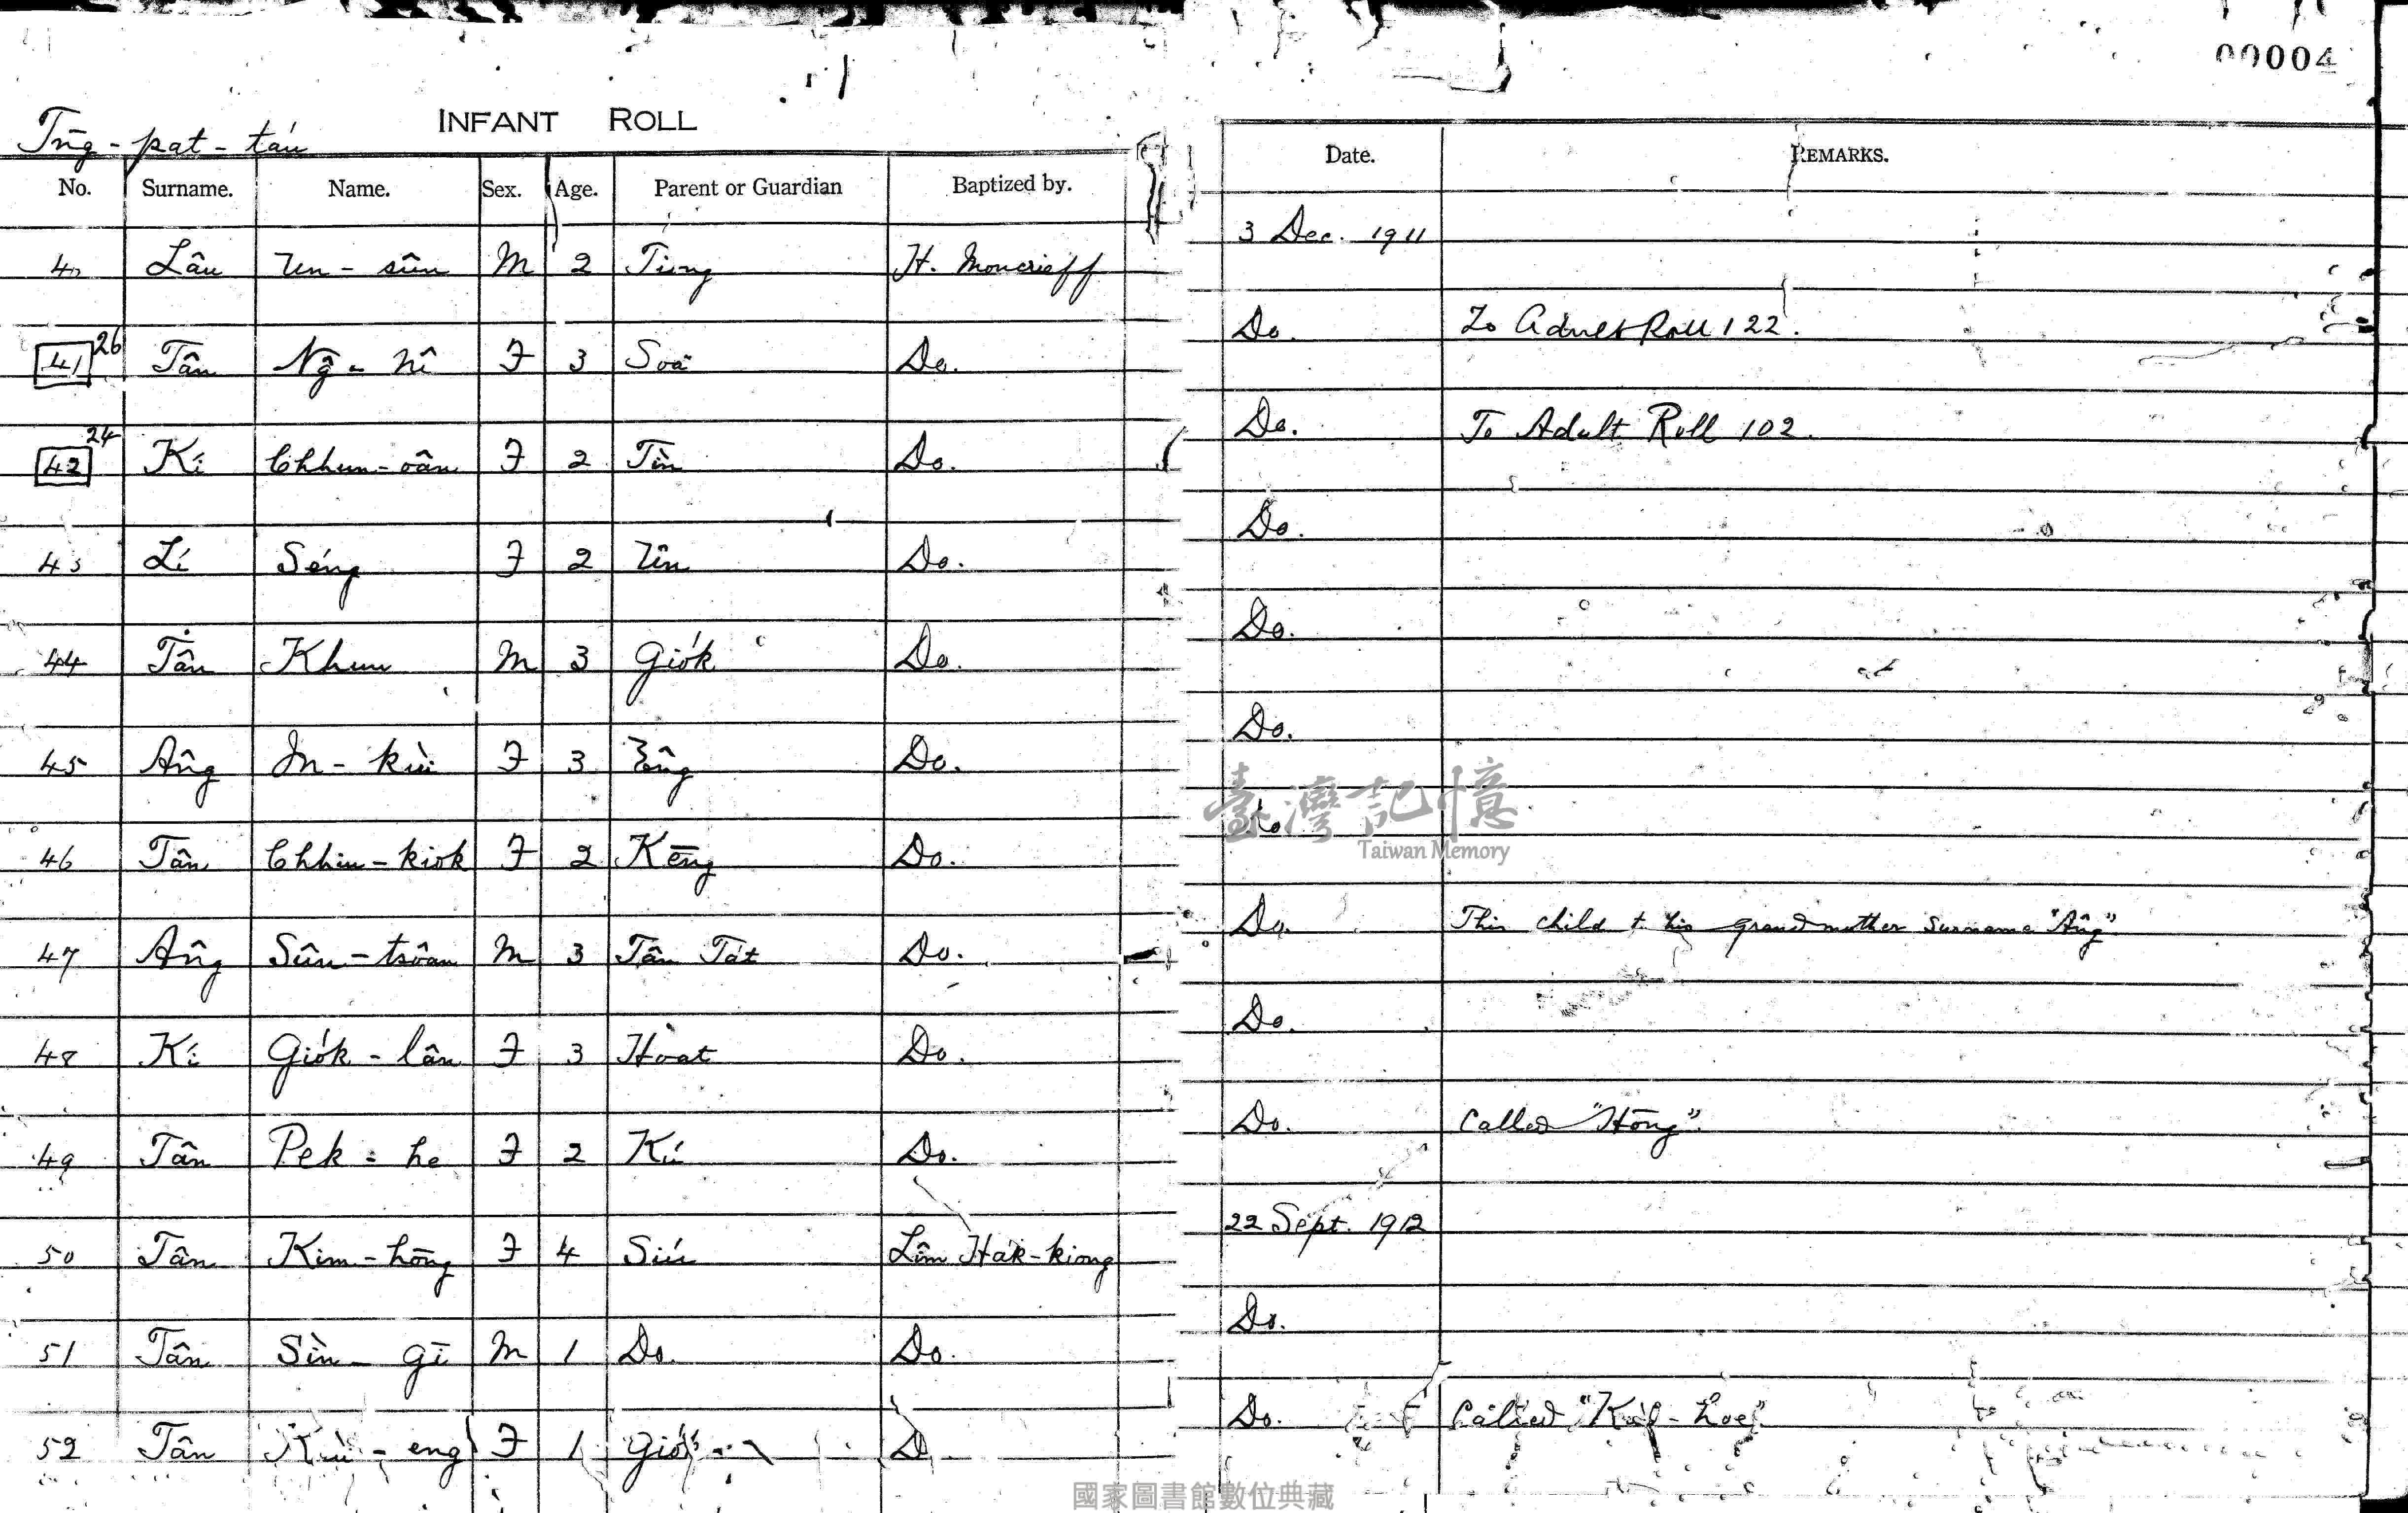 00004
INFANT ROLL
Tn̄g-pat-táu
No. Surname. Name. Sex. Age. Parent or Guardian Baptized by. Date. REMARKS.
40 Lâu Un-sûn M 2 Tiong H. Moncrieff 3 Dec. 1911
41 26 Tân Ngô-nî F 3 Soâ Do. Do. To Adult Roll 122.
42 24 Kí Chhun-oân F 2 Tìn Do. Do. To Adult Roll 102.
43 Lí Séng F 2 Ûn Do. Do.
44 Tân Khun M 3 Gio̍k Do. Do.
45 Âng In-kùi F 3 Do. Do.
46 Tân Chhiu-kiok F 2 Kēng Do. Do.
47 Âng Sûn-tsôan M 3 Tân Ta̍t Do. Do. This child + his grandmother surname "Âng".
48 Kí Gio̍k-lân F 3 Hoat Do. Do.
49 Tân Pek-he F 2 Kú Do. Do. Called "Hōng".
50 Tân Kim-hōng F 4 Siú Lîm Ha̍k-kiong 22 Sept. 1912
51 Tân Sìn-gī M 1 Do. Do. Do.
52 Tân Kùi-eng F 1 D Do. Called
臺灣記憶
Taiwan Memory
國家圖書館數位典藏